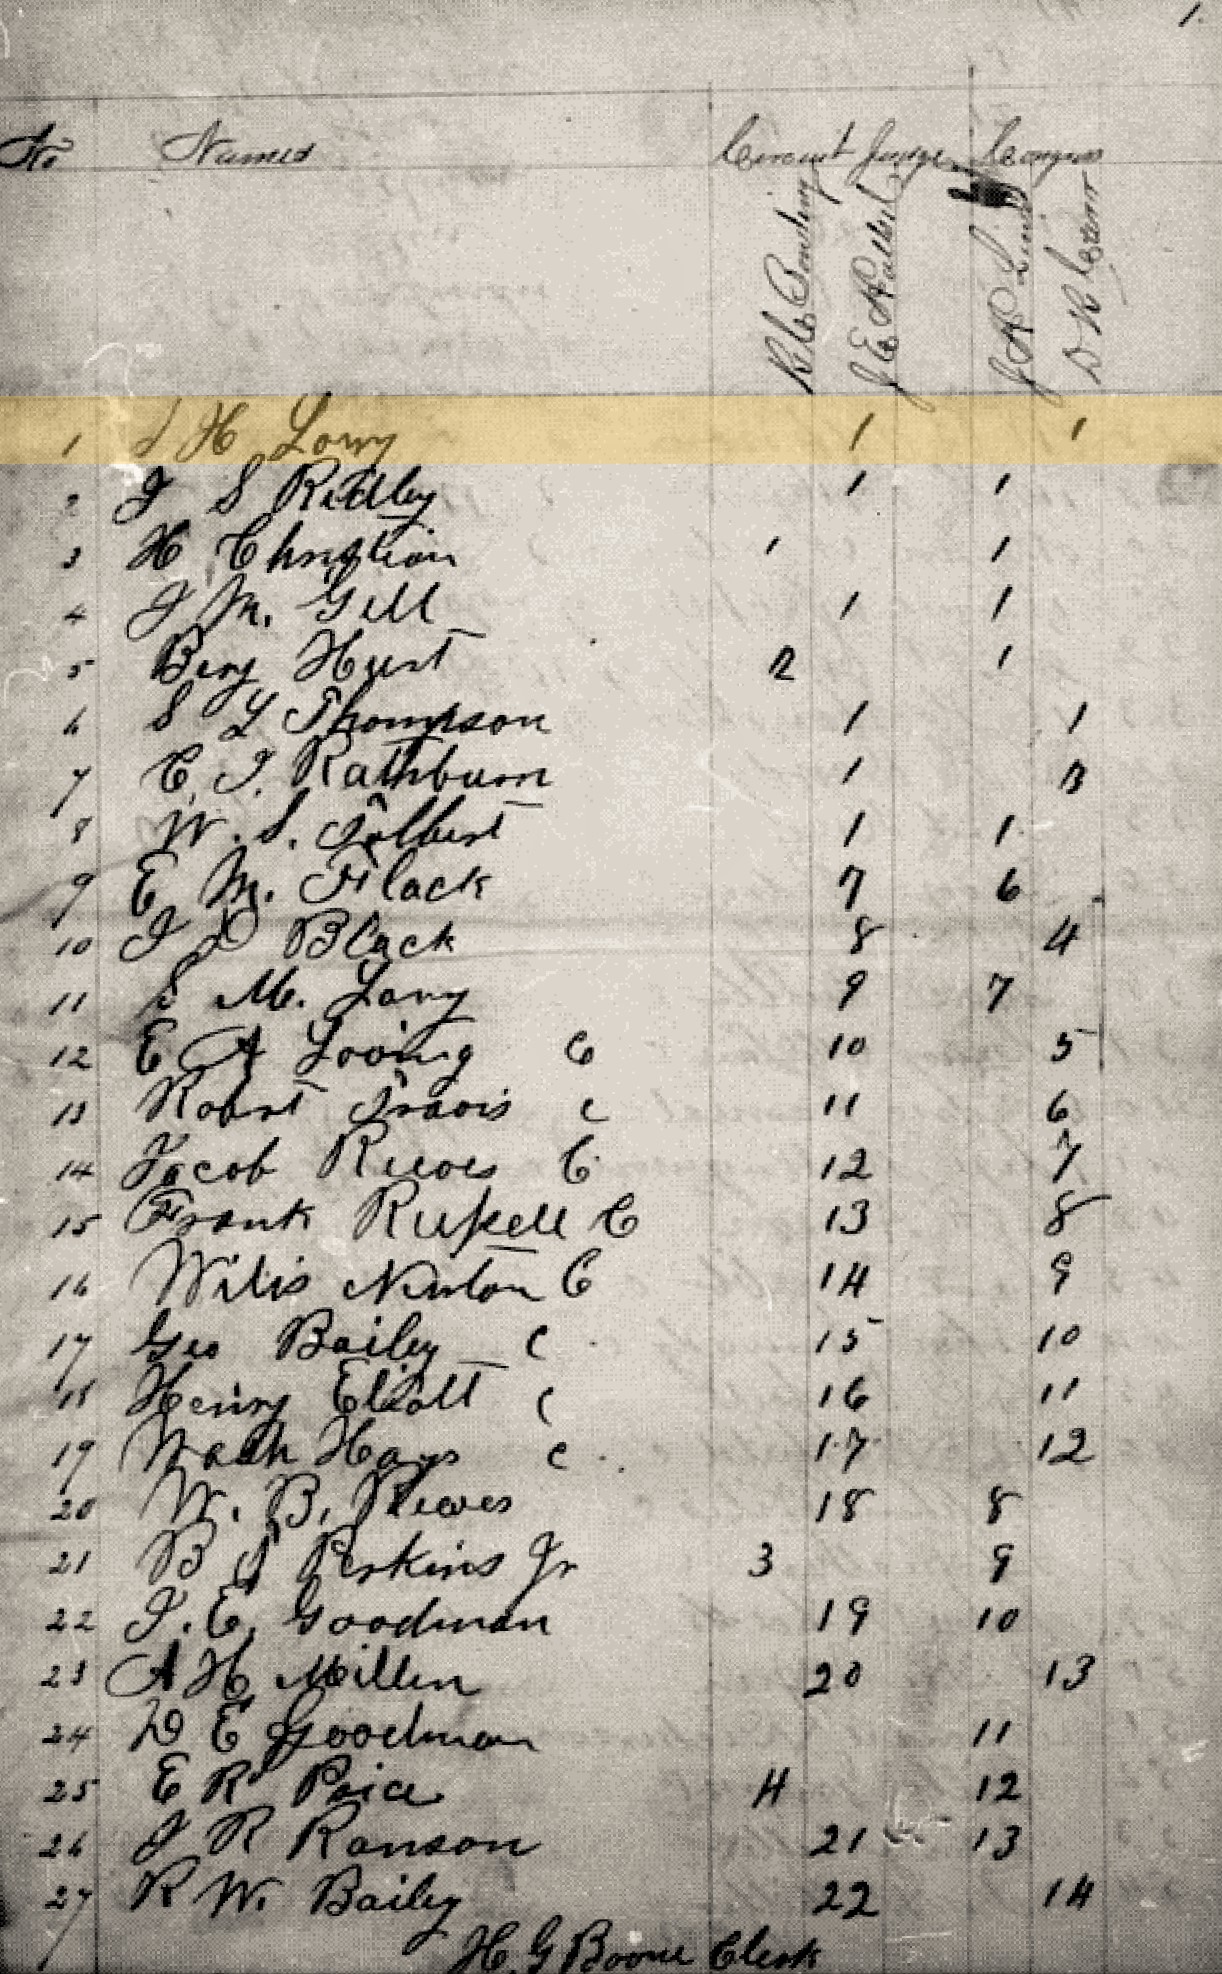 1.
No Names Circuit Judge Congress
J R D R
1 H Lowry 1 1
2 J S Ridley 1 1
3 H Christian 1 1
4 J M. Gill 1 1
5 Berry Hust 2 1
6 S L Thompson 1 1
7 C. J. Rathburn 1 3
8 W. S. Tolbert 1 1
9 E M. Flack 7 6
10 J D Black 8 4
11 S M. Lary 9 7
12 E A Loving C 10 5
13 Robert Travis C 11 6
14 Jacob Reeves C 12 7
15 Frank Russell C 13 8
16 Wilis Newton C 14 9
17 Geo Bailey C 15 10
18 Henry Eliott C 16 11
19 Wash Hays C 17 12
20 W. B. Reeves 18 8
21 B Perkins Jr 3 9
22 J. E. Goodman 19 10
23 A H Millen 20 13
24 D E Goodman 11
25 E R Price 4 12
26 J R Ranson 21 13
27 R W. Bailey 22 14
H. G Boone Clerk